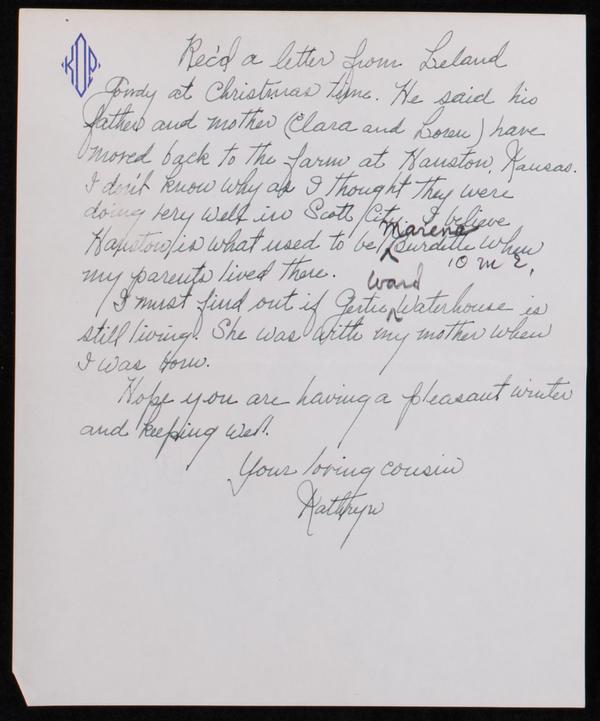 KDP
Rec'd a letter from Leland
Gowdy at Christmas time. He said his
father and mother (Clara and Loren) have
moved back to the farm at Hanston, Kansas.
I don't know why as I thought they were
doing very well in Scott City. I believe
Marena
Hanston is what used to be Burdette when
10 m E,
my parents lived there.
Ward
I must find out if Gertie Waterhouse is
still living. She was with my mother when
I was born.
Hope you are having a pleasant winter
and keeping well.
Your loving cousin
Kathryn